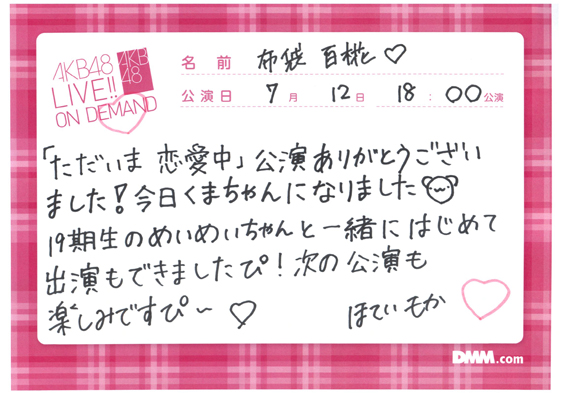 AKB48
LIVE!!
ON DEMAND
AKB
48
名前 布袋 百椛 ♡
公演日 7月 12日 18:00公演
「ただいま 恋愛中」公演ありがとうござい
ました!今日くまちゃんになりました
19期生のめいめいちゃんと一緒にはじめて
出演もできましたぴ!次の公演も
楽しみですぴ〜 ♡
ほてい もか
DMM.com